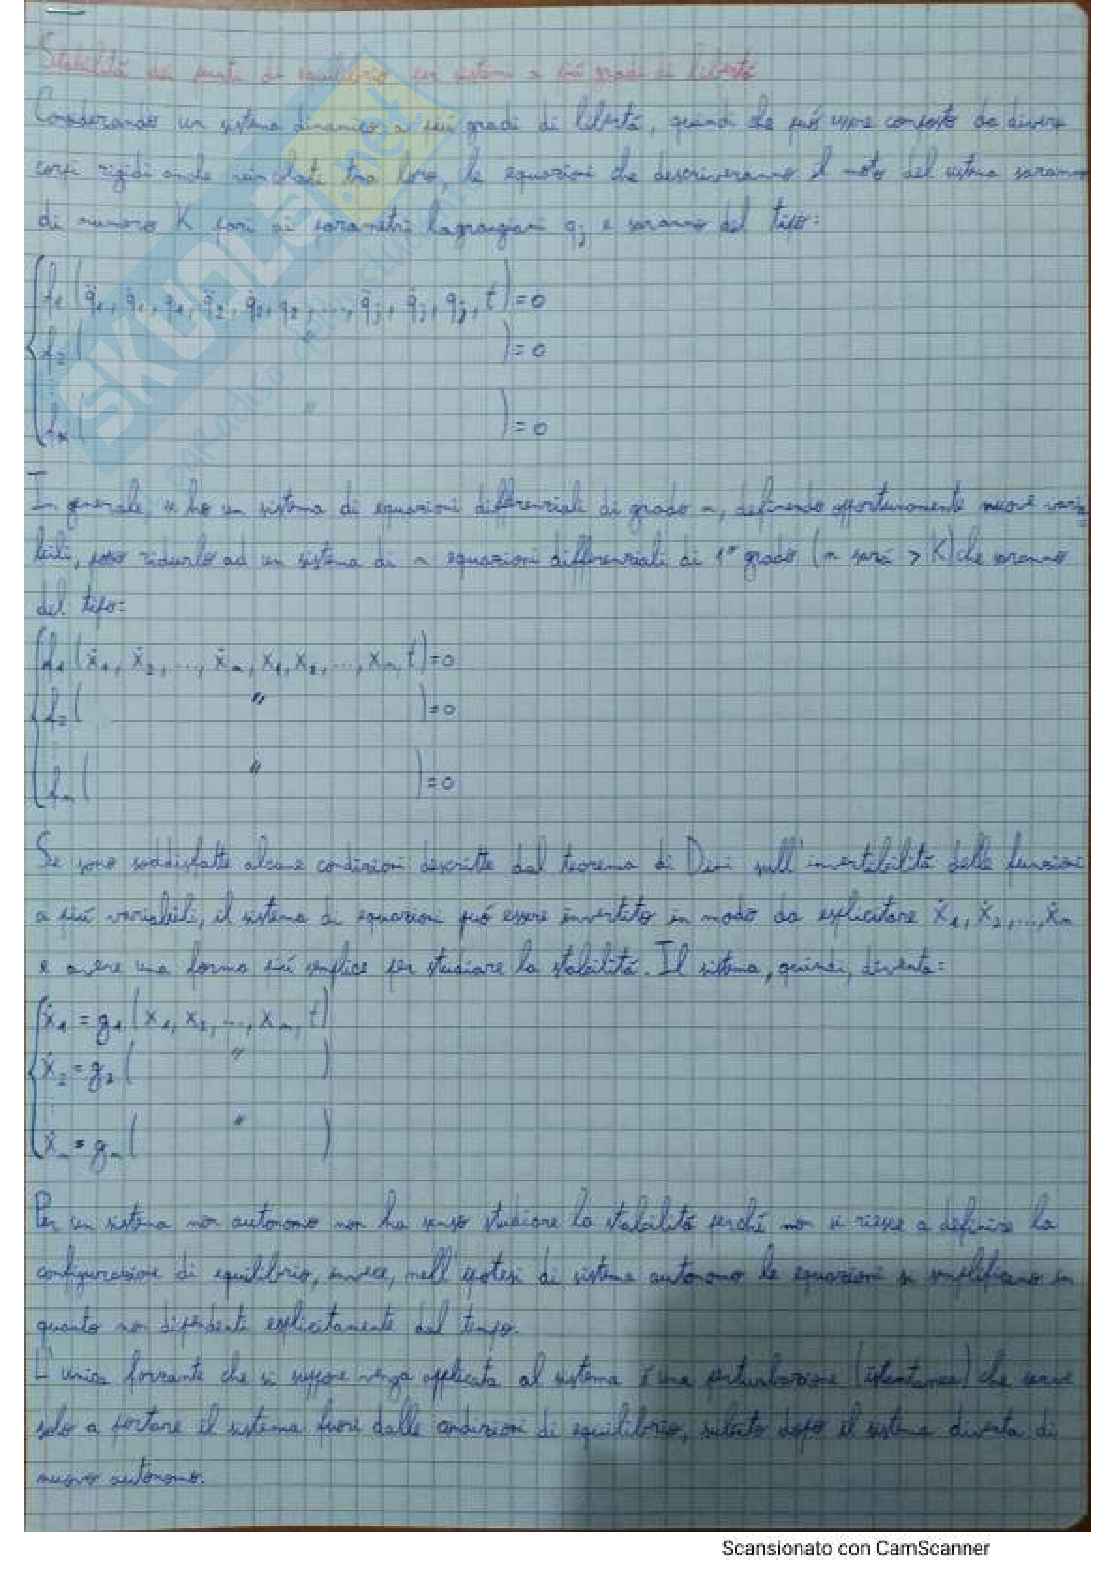 Stabilità dei punti di equilibrio per sistemi a più gradi di libertà
Considerando un sistema dinamico a più gradi di libertà, quindi che può essere composto da diversi
corpi rigidi anche vincolati tra loro, le equazioni che descriveranno il moto del sistema saranno
di numero K pari ai parametri lagrangiani qj e saranno del tipo:
f1(q̈1, q̇1, q1, q̈2, q̇2, q2, ..., q̈j, q̇j, qj, t)=0
f2( " )=0
fk( " )=0
In generale, si ha un sistema di equazioni differenziali di grado n, definendo opportunamente nuove varia
bili, posso ridurlo ad un sistema di n equazioni differenziali di 1° grado (n sarà > K) che saranno
del tipo:
f1(ẋ1, ẋ2, ..., ẋn, x1, x2, ..., xn, t)=0
f2( " )=0
fn( " )=0
Se sono soddisfatte alcune condizioni descritte dal teorema di Dini sull'invertibilità delle funzioni
a più variabili, il sistema di equazioni può essere invertito in modo da esplicitare ẋ1, ẋ2, ..., ẋn
e avere una forma più semplice per studiare la stabilità. Il sistema, quindi, diventa:
ẋ1 = g1(x1, x2, ..., xn, t)
ẋ2 = g2( " )
ẋn = gn( " )
Per un sistema non autonomo non ha senso studiare la stabilità perché non si riesce a definire la
configurazione di equilibrio, invece, nell'ipotesi di sistema autonomo le equazioni si semplificano in
quanto non dipendenti esplicitamente dal tempo.
L'unica forzante che si suppone venga applicata al sistema è una perturbazione (istantanea) che serve
solo a portare il sistema fuori dalle condizioni di equilibrio, subito dopo il sistema diventa di
nuovo autonomo.
SKUOLA.net
Scansionato con CamScanner